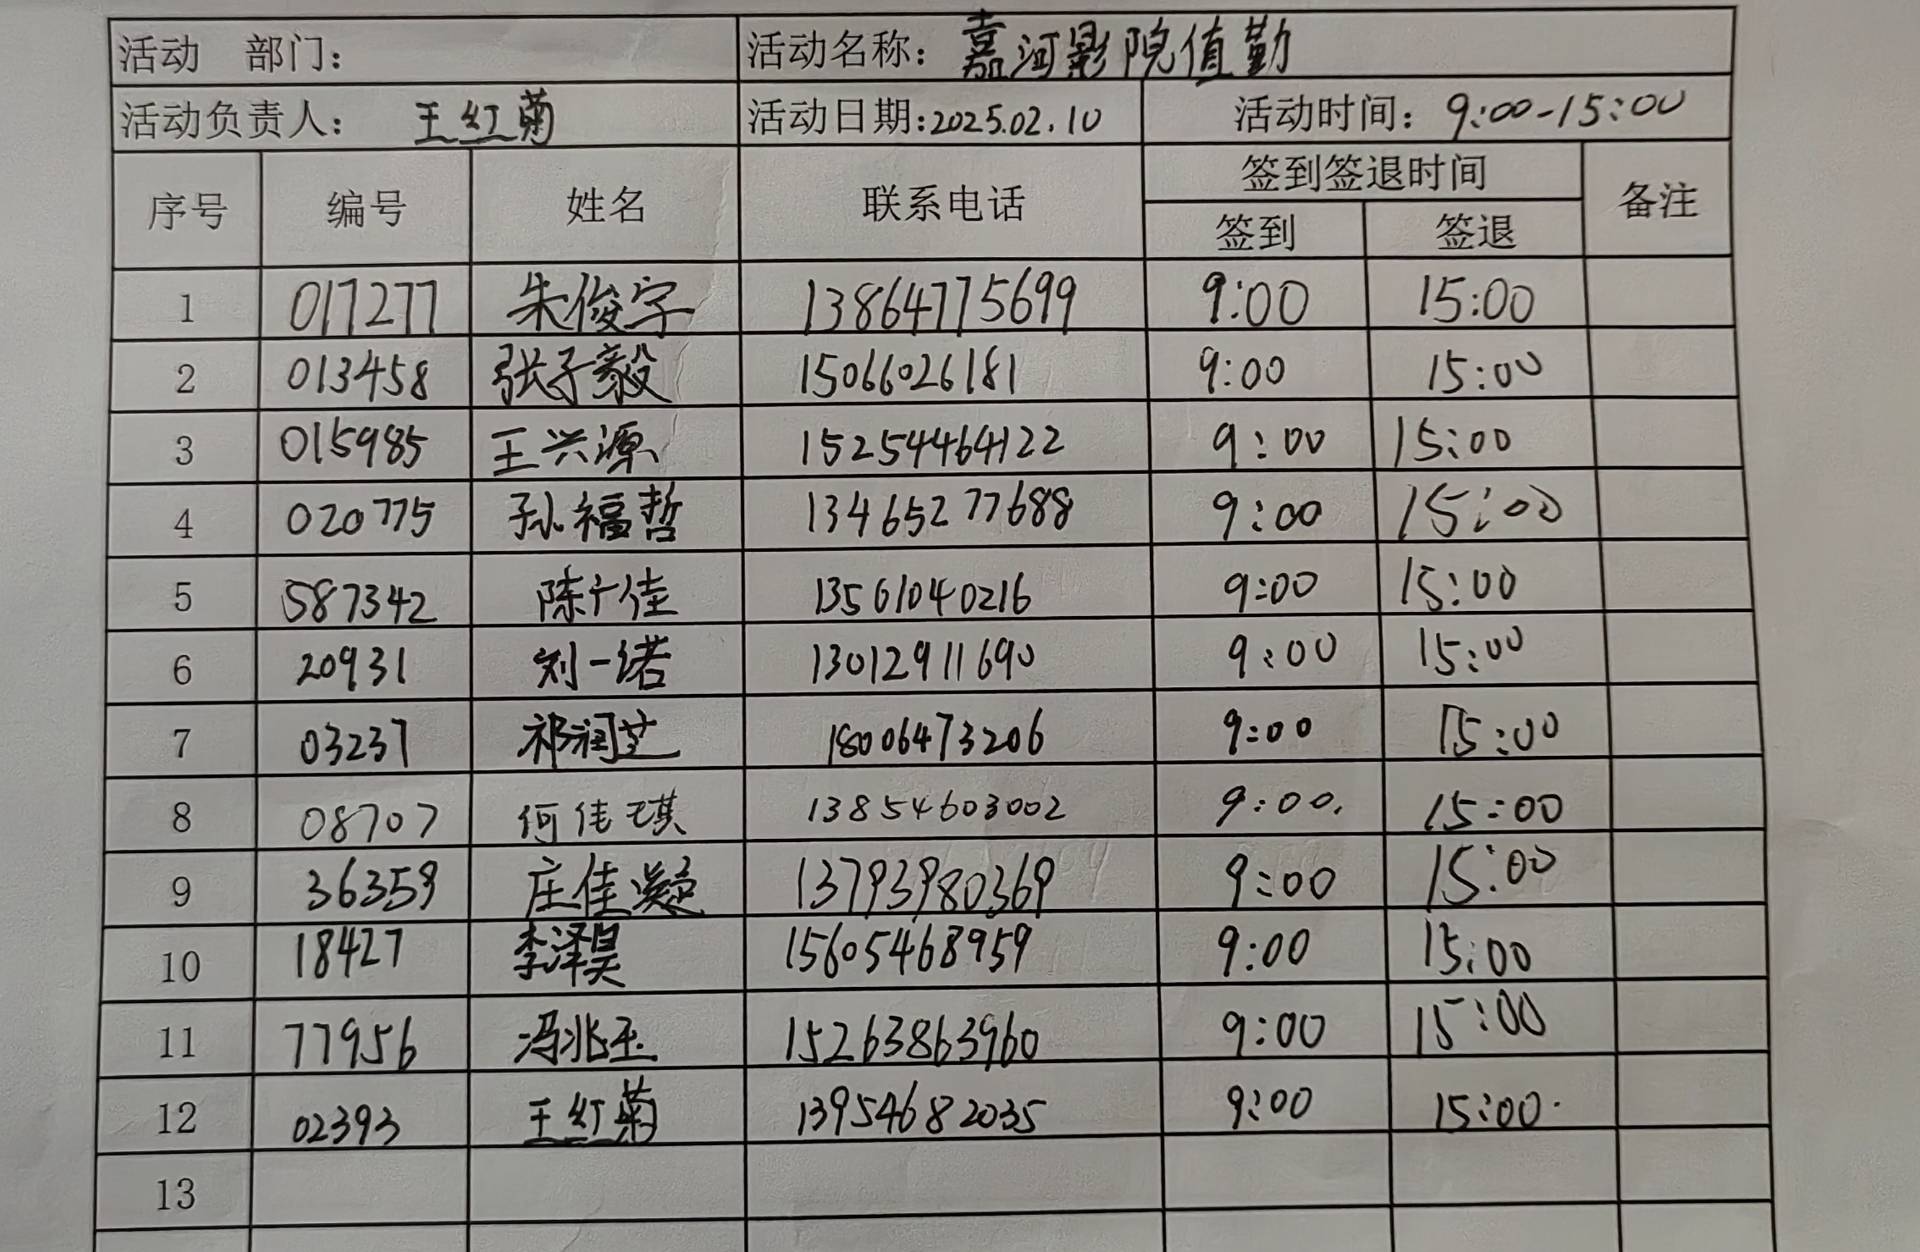 活动 部门： 活动名称：嘉河影院值勤
活动负责人： 王红菊 活动日期：2025.02.10 活动时间：9:00-15:00
序号 编号 姓名 联系电话 签到签退时间 备注
签到 签退
1 017277 朱俊宇 13864775699 9:00 15:00
2 013458 张子毅 15066026181 9:00 15:00
3 015985 王兴源 15254464122 9:00 15:00
4 020775 孙福哲 13465277688 9:00 15:00
5 587342 陈广佳 13561040216 9:00 15:00
6 20931 刘一诺 13012911690 9:00 15:00
7 03237 祁润芝 18006473206 9:00 15:00
8 08707 何佳琪 13854603002 9:00. 15:00
9 36359 庄佳凝 13793980369 9:00 15:00
10 18427 李泽昊 15605468959 9:00 15:00
11 77956 冯兆玉 15263863960 9:00 15:00
12 02393 王红菊 13954682035 9:00 15:00.
13